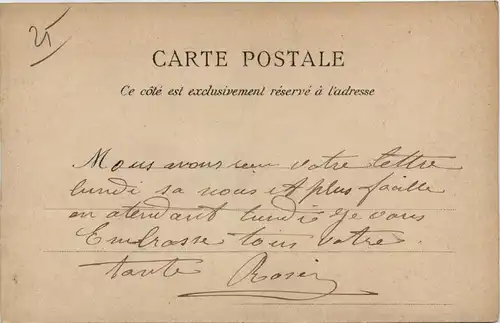 25
CARTE POSTALE
Ce côté est exclusivement réservé à l'adresse
Nous avons reu votre lettre
lundi sa nous et plus facille
en atendant lundi Je vous
Embrasse tous votre
tante Rosier